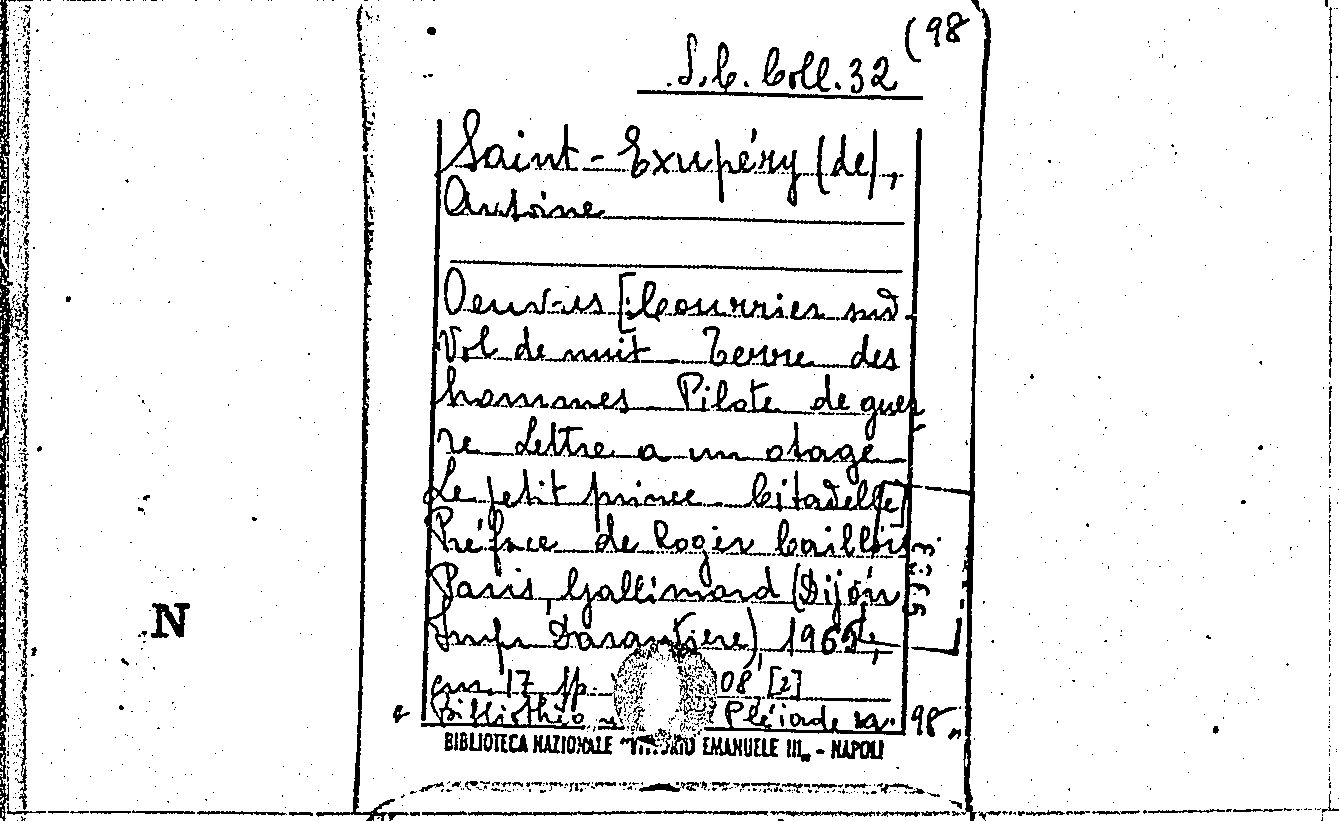 (98
S.C. Coll. 32
Saint-Exupéry (de),
Antoine
Oeuvres [: Courrier sud.
Vol de nuit Terre des
hommes Pilote de guer
re Lettre a un otage
Le petit prince Citadelle]
Préface de Roger Caillois
Paris, Gallimard (Dijon
Imp. Darantiere), 1965,
cm. 17, pp. 08 [2]
Pléiade n. 98„
BIBLIOTECA NAZIONALE "VITTORIO EMANUELE III„ - NAPOLI
N